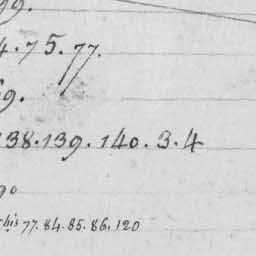 99.
4.75.77.
9.
138.139.140.3.4
90
bis 77.84.85.86.120